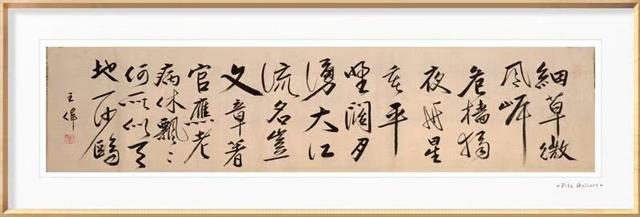 細草微
风岸
危檣獨
夜舟星
垂平
埜闊月
湧大江
流名豈
文章著
官應老
病休飄〻
何所似天
地一沙鷗
王
Gallery